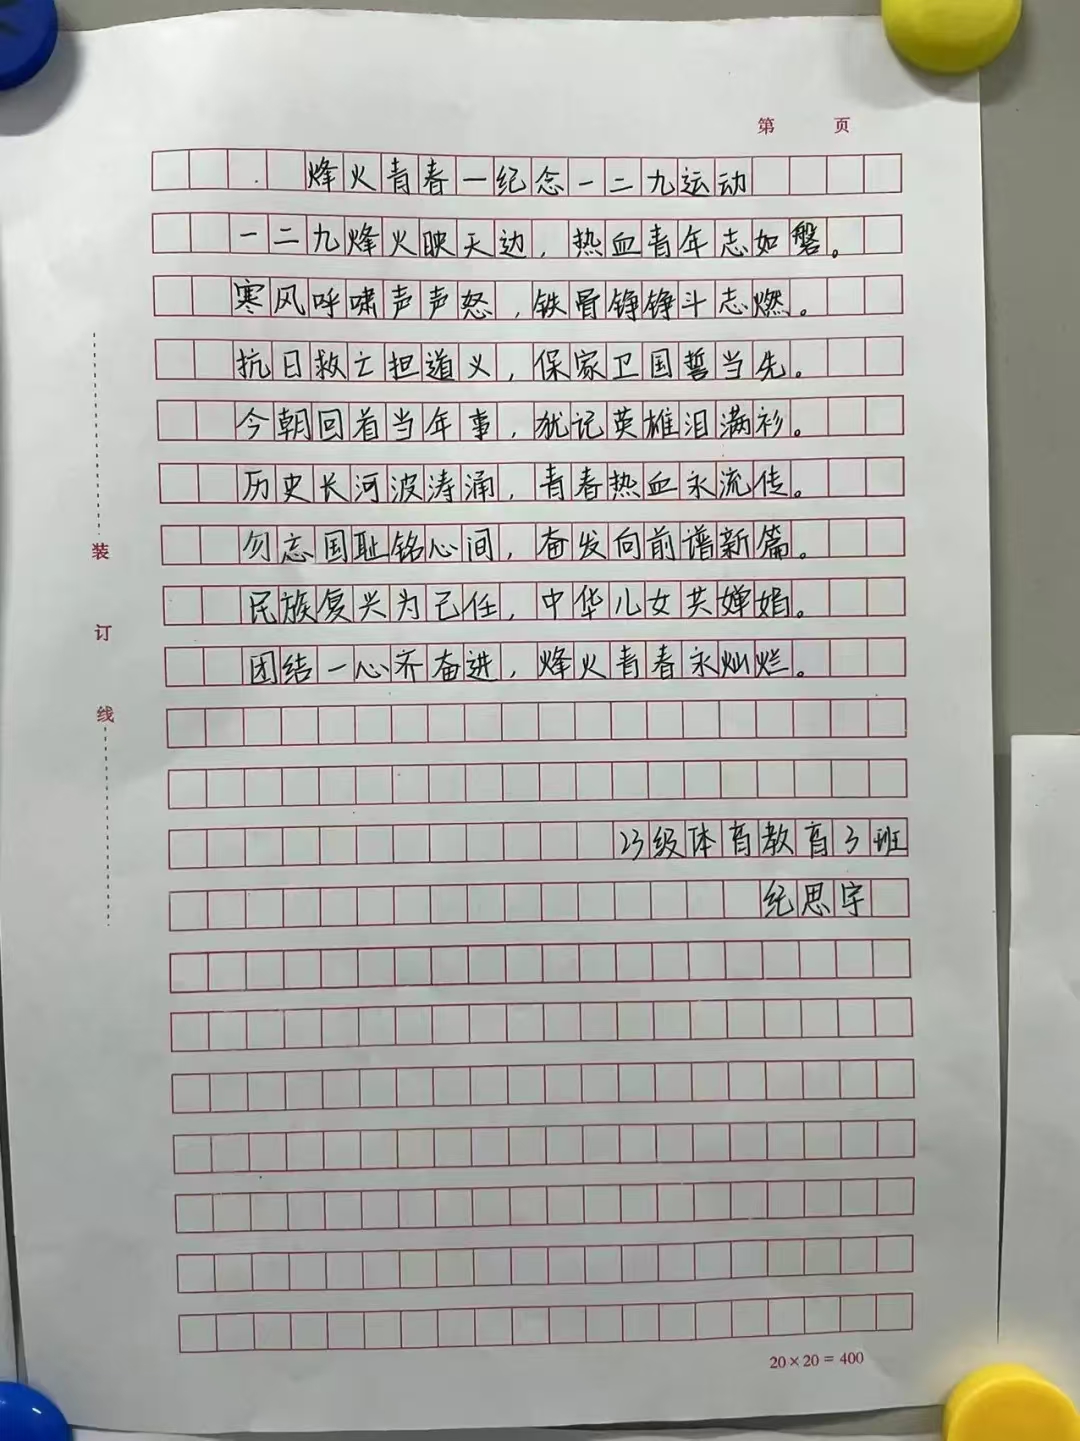 第 页
烽火青春一纪念一二九运动
一二九烽火映天边，热血青年志如磐。
寒风呼啸声声怒，铁骨铮铮斗志燃。
抗日救亡担道义，保家卫国誓当先。
今朝回首当年事，犹记英雄泪满衫。
历史长河波涛涌，青春热血永流传。
勿忘国耻铭心间，奋发向前谱新篇。
民族复兴为己任，中华儿女共婵娟。
团结一心齐奋进，烽火青春永灿烂。
23级体育教育3班
纪思宇
装
订
线
20×20＝400